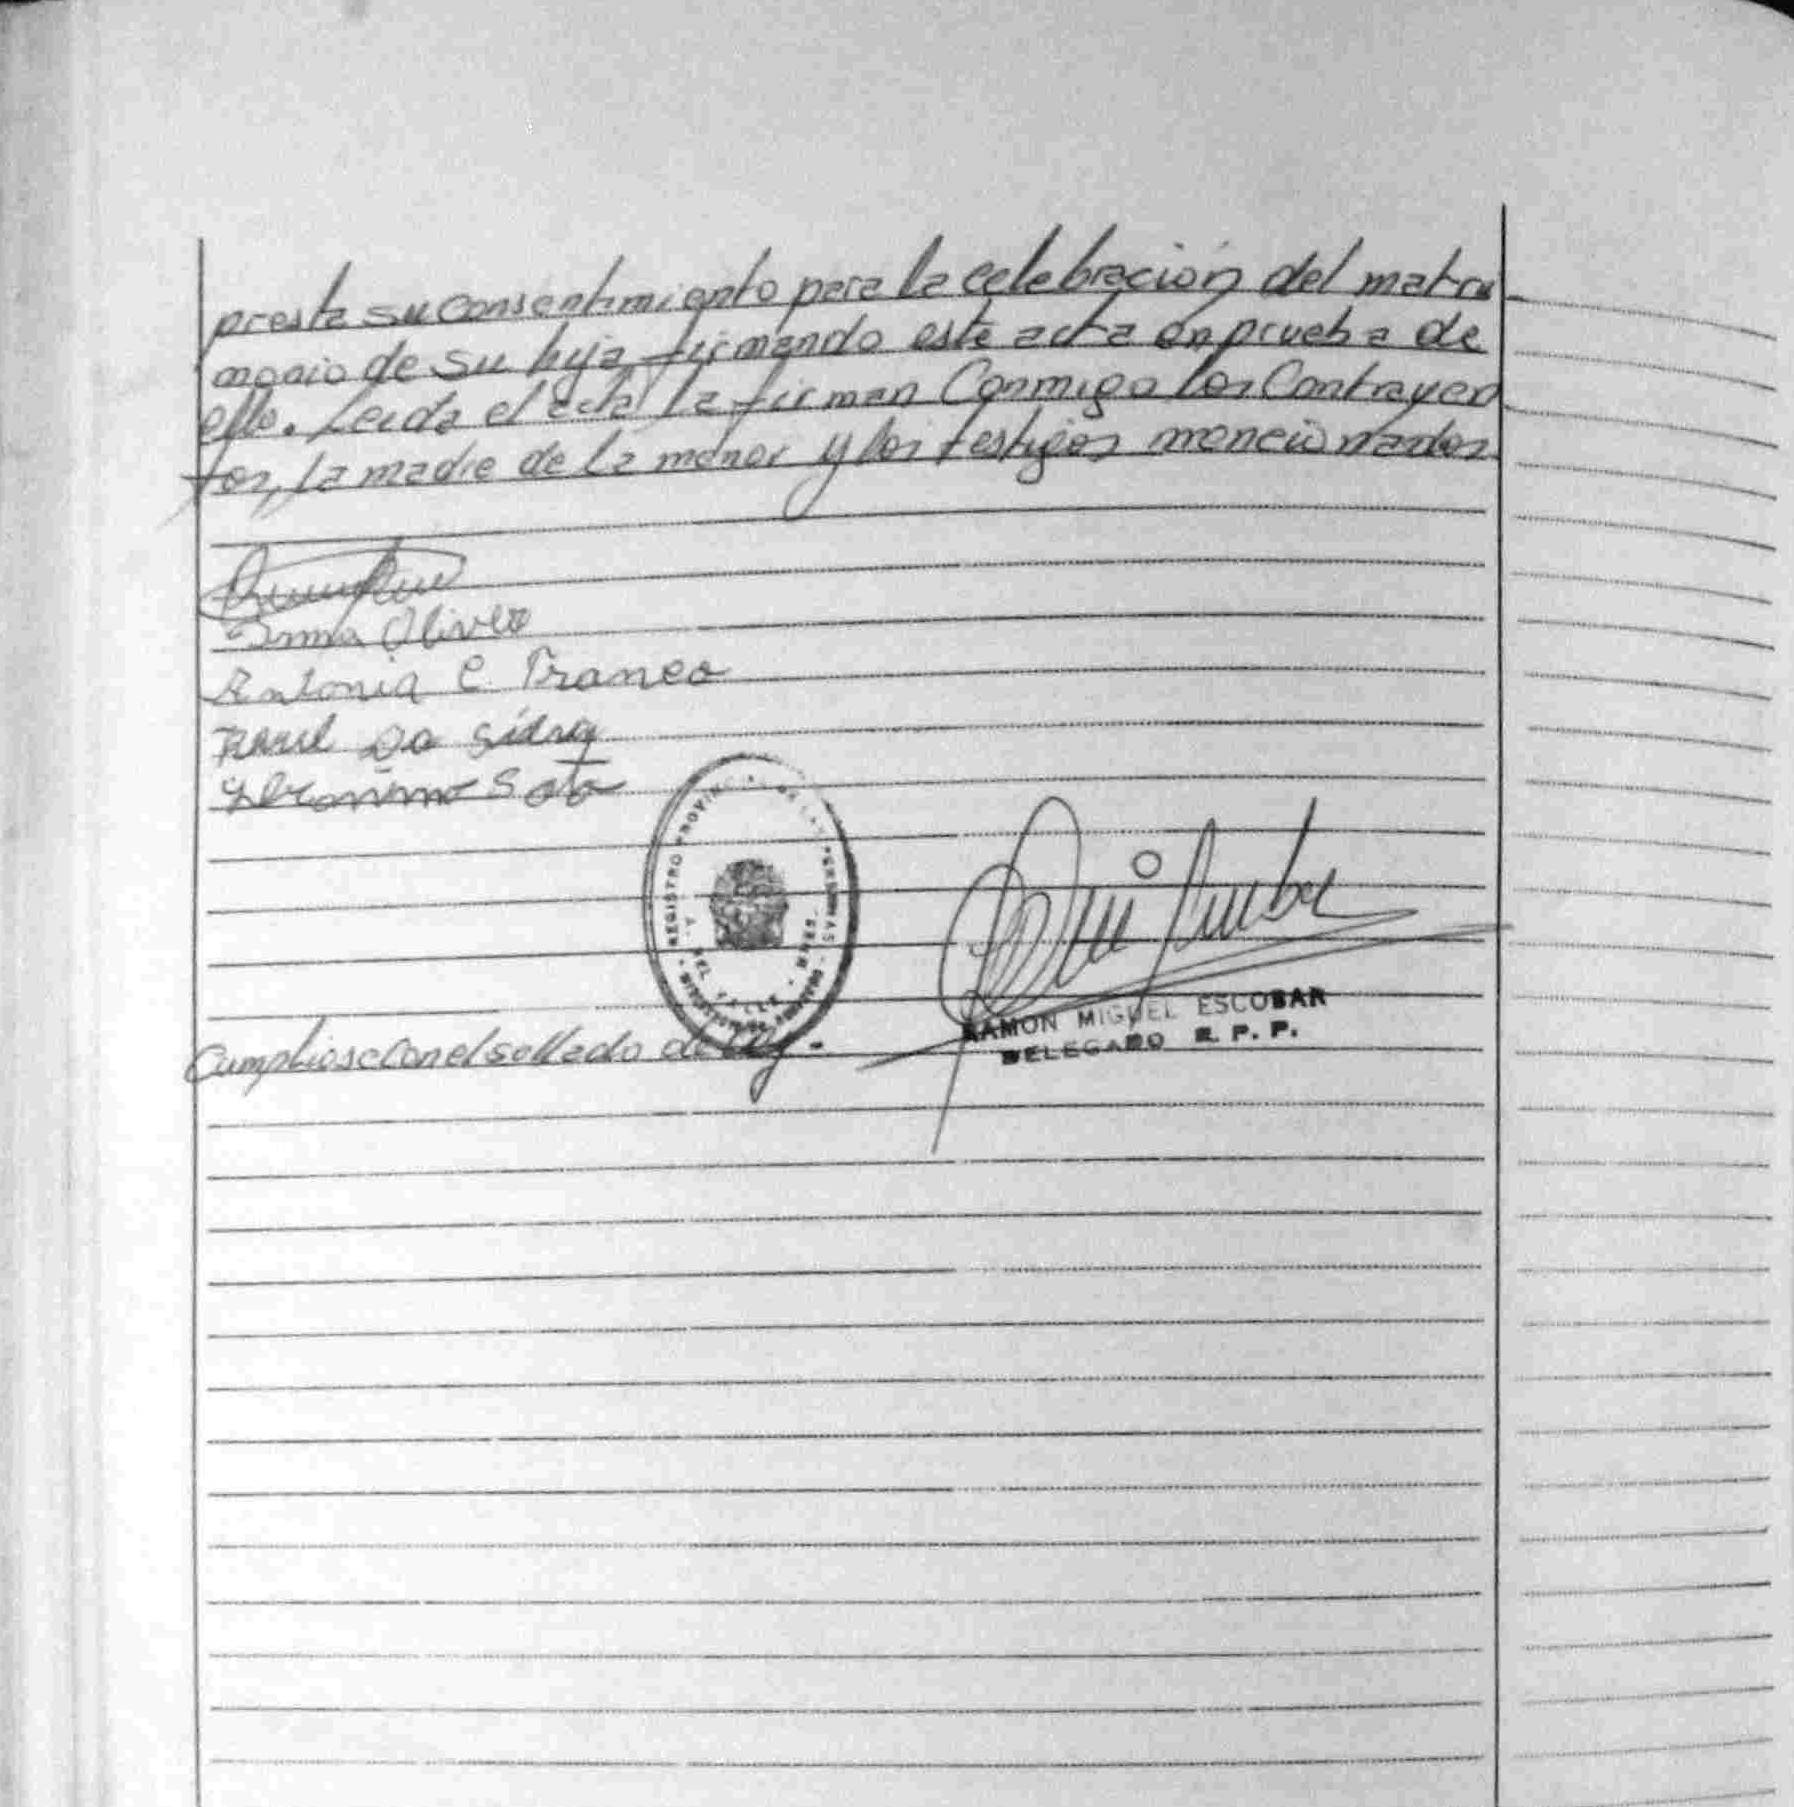 presta su consentimiento para la celebración del matri
monio de su hija firmando este acta en prueba de
ello. Leida el acta la firman Conmigo los Contrayen
tes, la madre de la menor y los testigos mencionados
Irma Olivera
Antonia C. Franco
Raul Da Sidney
Geronimo Soto
REGISTRO PROVINCIAL DE LAS PERSONAS
DEL VALLE
RAMON MIGUEL ESCOBAR
DELEGADO R. P. P.
Cumpliose con el sellado de ley.-